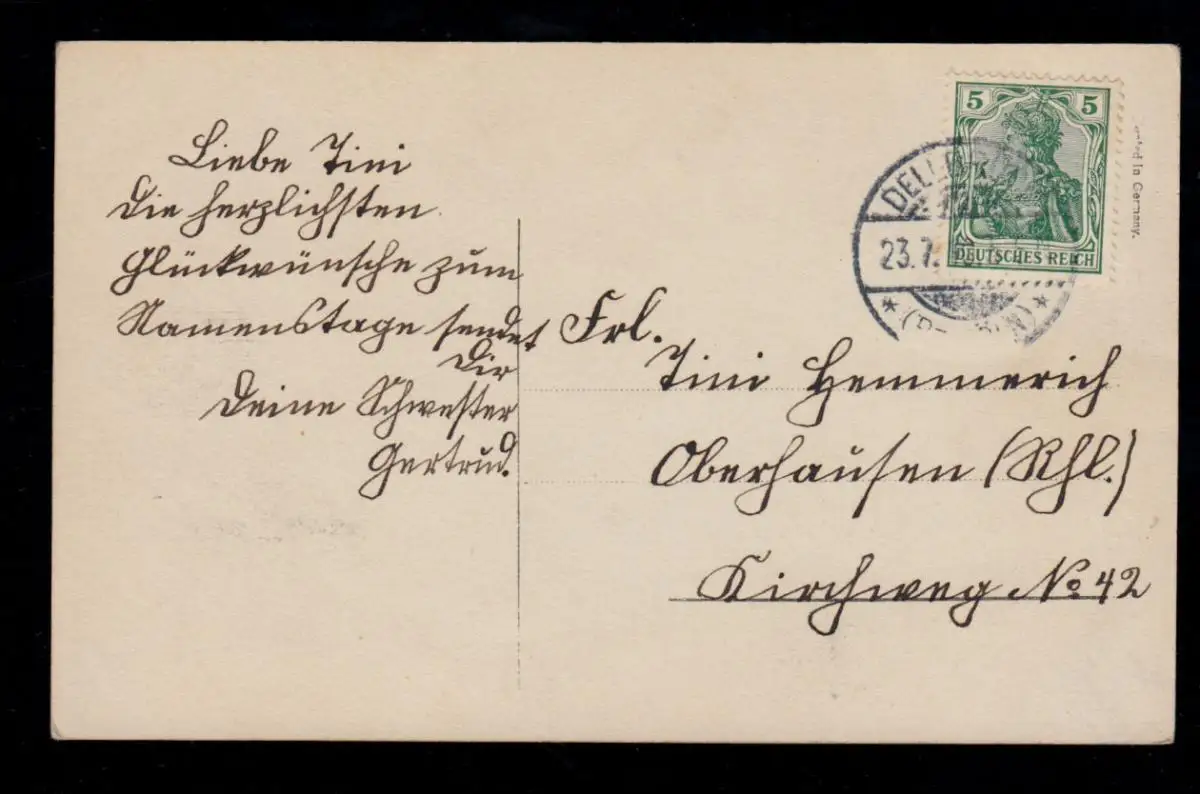 Liebe Tini
Die herzlichsten
Glückwünsche zum
Namenstage sendet
Dir
Deine Schwester
Gertrud.
5 5
DEUTSCHES REICH
23.7.
in Germany.
Frl.
Tini Hemmerich
Oberhausen (Rhl.)
Kirchweg No 42